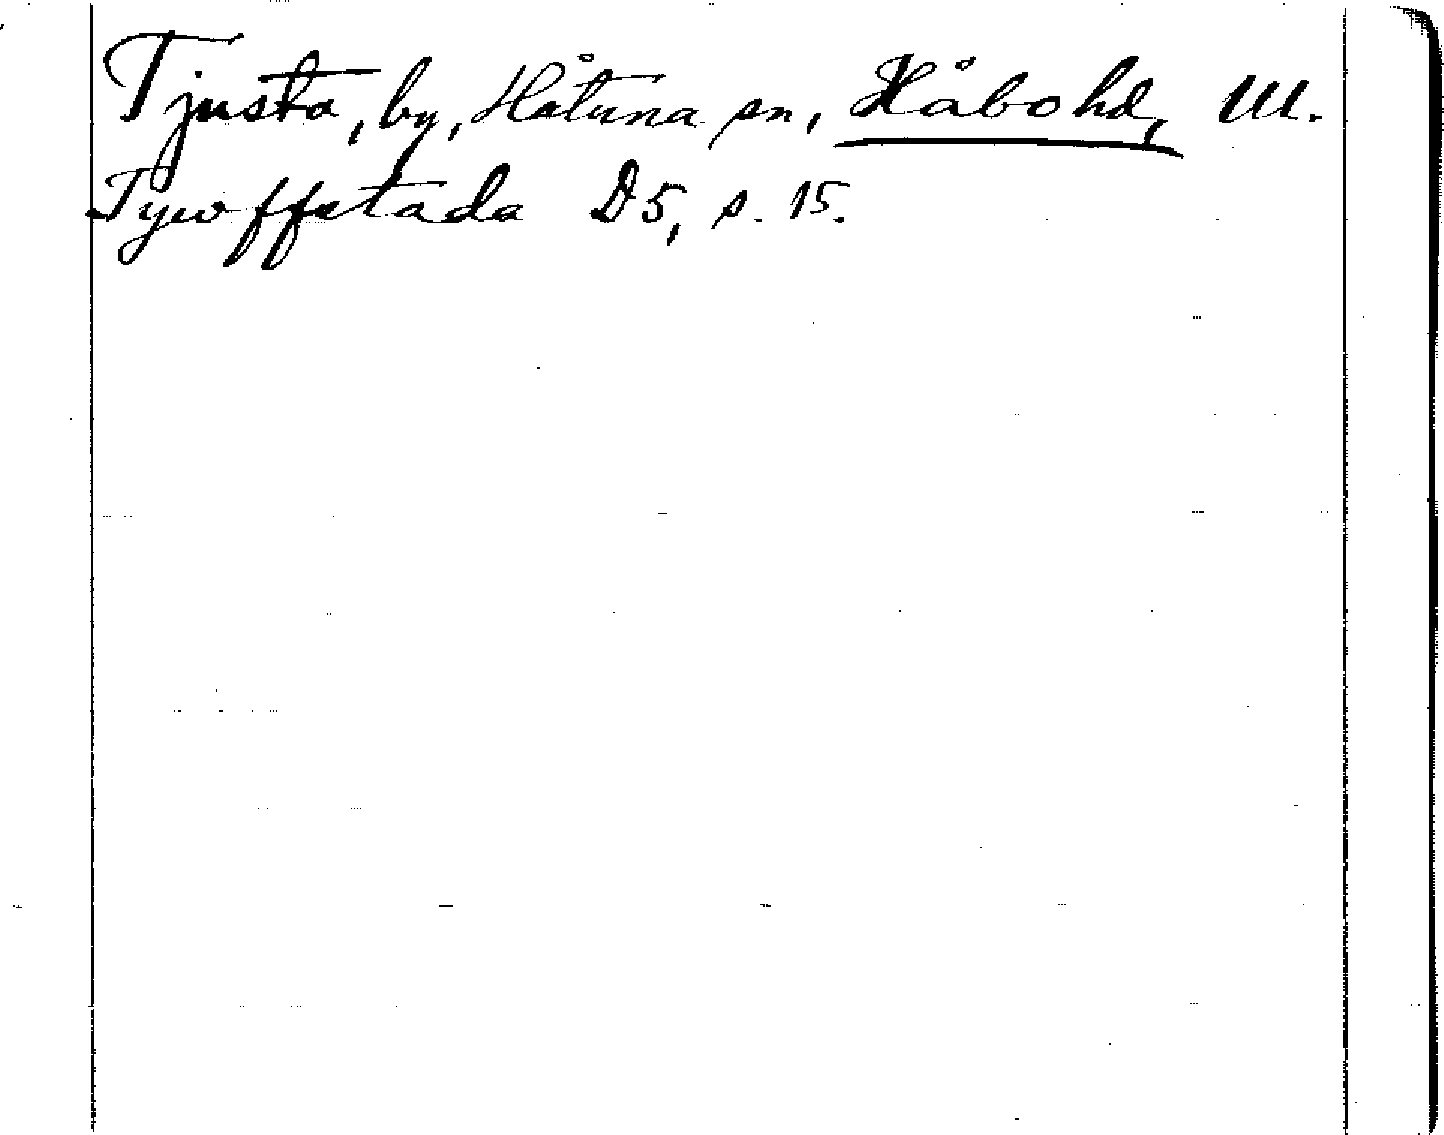 Tjusta, by, Håtuna sn, Håbo hd, Ul.
Tywffstada D5, s. 15.